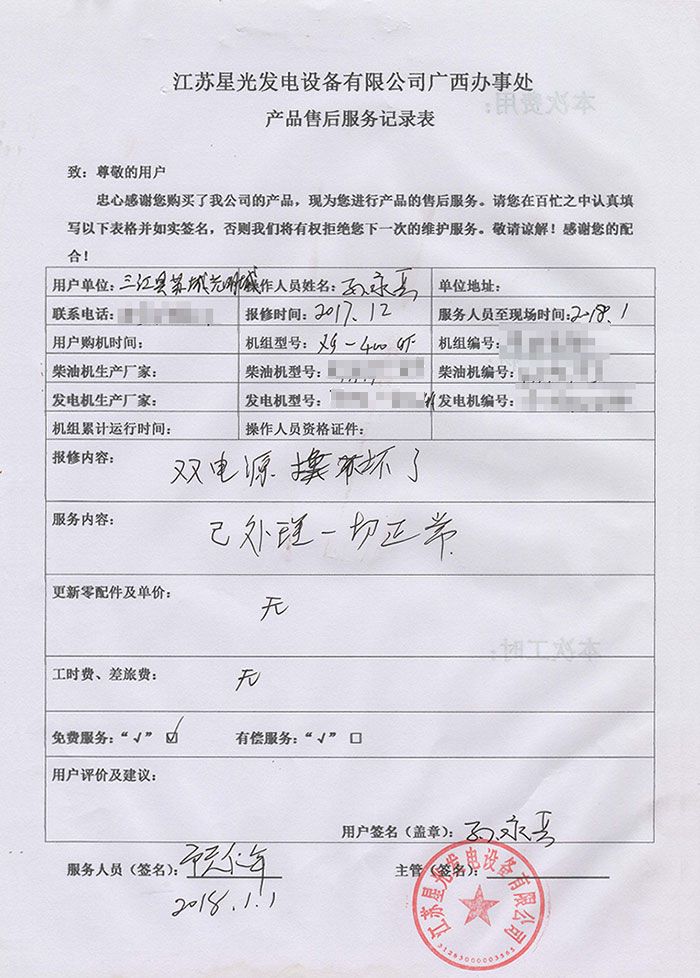 江苏星光发电设备有限公司广西办事处
产品售后服务记录表
致：尊敬的用户
忠心感谢您购买了我公司的产品，现为您进行产品的售后服务。请您在百忙之中认真填
写以下表格并如实签名，否则我们将有权拒绝您下一次的维护服务。敬请谅解！感谢您的配
合！
用户单位：三江县 城 城 操作人员姓名： 单位地址：
联系电话： 报修时间：2017.12 服务人员至现场时间：2018.1
用户购机时间： 机组型号： 机组编号：
柴油机生产厂家： 柴油机型号： 柴油机编号：
发电机生产厂家： 发电机型号： 发电机编号：
机组累计运行时间： 操作人员资格证件：
报修内容： 双电源 坏了
服务内容： 已处理一切正常
更新零配件及单价： 无
工时费、差旅费： 无
免费服务：“√” ☑ 有偿服务：“√” □
用户评价及建议：
用户签名（盖章）：
服务人员（签名）： 主管（签名）：
2018.1.1
江苏星光发电设备有限公司
本次费用：
本次工时：